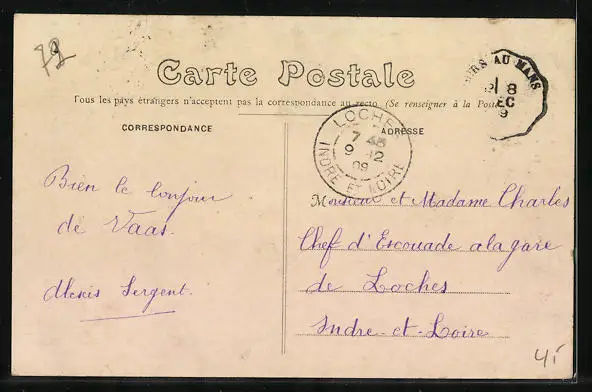 79
Carte Postale
Tous les pays étrangers n'acceptent pas la correspondance au recto. (Se renseigner à la Poste
CORRESPONDANCE
ADRESSE
AU MANS
8
EC
9
LOCHES
7 45
9 12
09
INDRE ET LOIRE
Bien le bonjour
de Vaas.
Alexis Sergent.
Monsieur et Madame Charles
Chef d'Escouade a la gare
de Loches
Indre-et-Loire